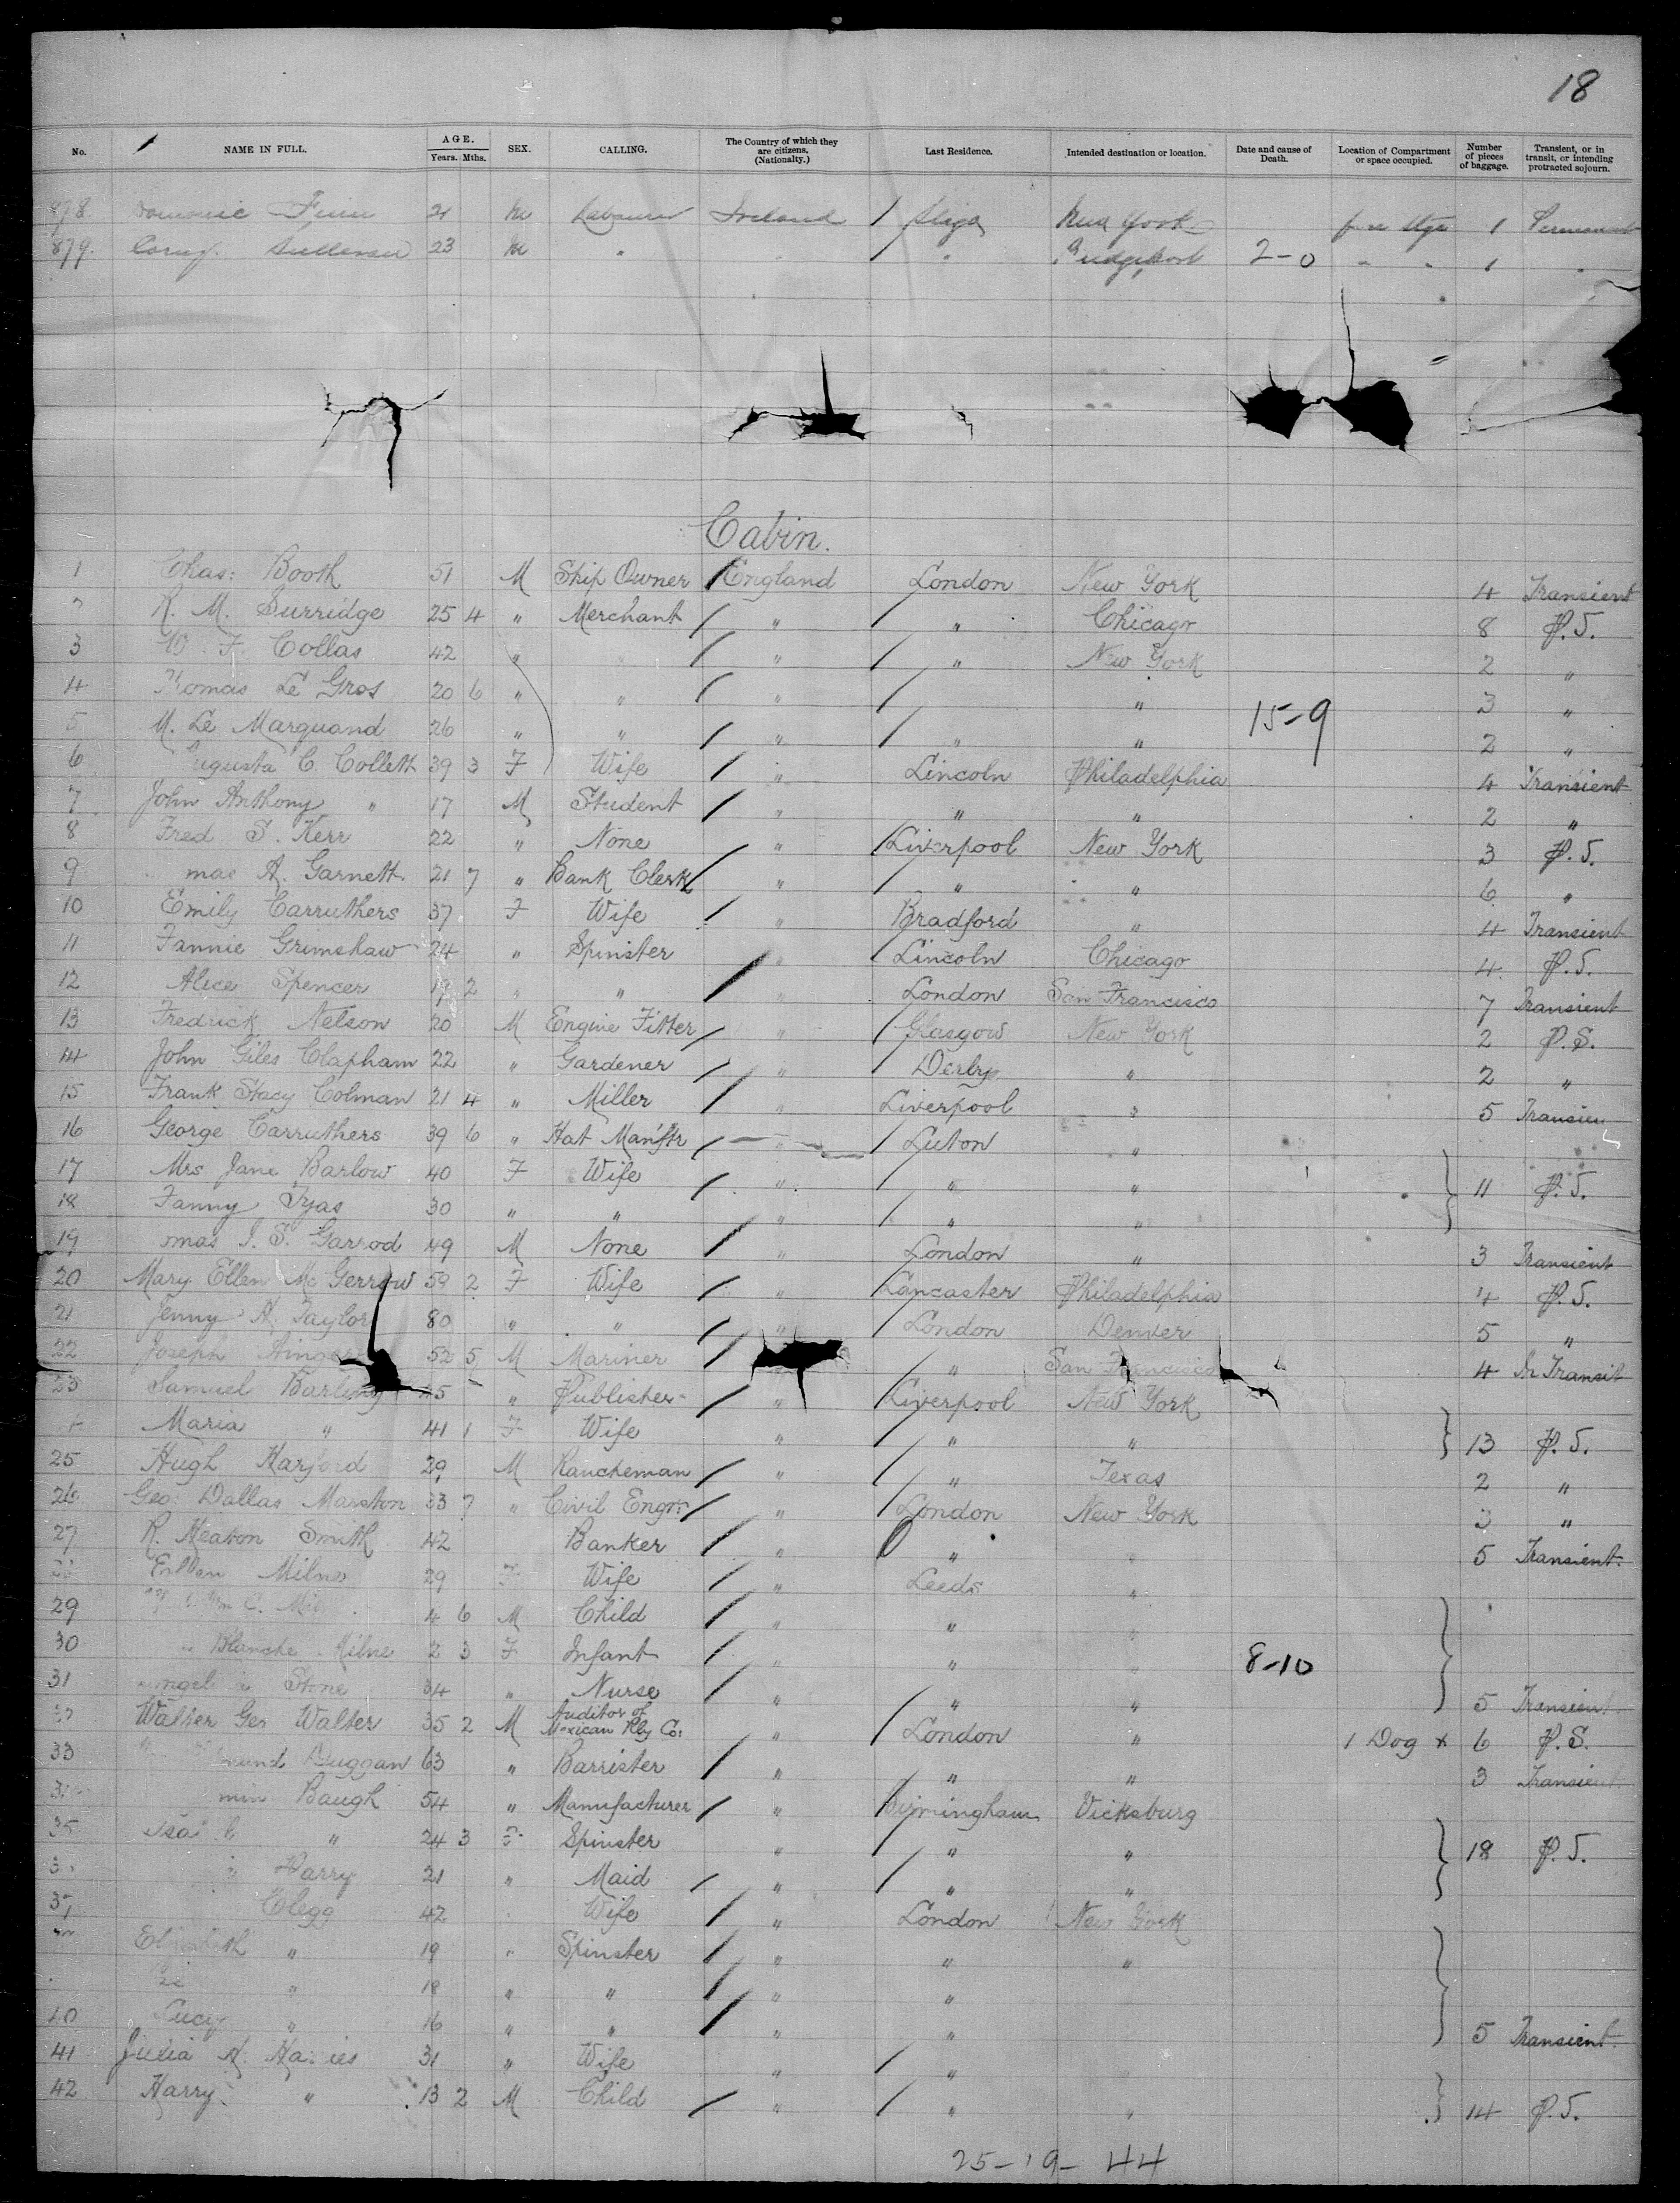 18
No. NAME IN FULL. AGE. Years. Mths. SEX. CALLING. The Country of which they are citizens. (Nationalty.) Last Residence. Intended destination or location. Date and cause of Death. Location of Compartment or space occupied. Number of pieces of baggage. Transient, or in transit, or intending protracted sojourn.
878 21 M Labourer Ireland / Sligo New York 1 Permanent
879. 23 M " " / " Bridgeport 2-0 " " 1 "
Cabin.
1 Chas: Booth 51 M Ship Owner / England London New York 4 Transient
R. M. Surridge 25 4 " Merchant / " / " Chicago 8 P.S.
3 W. F. Collas 42 " " / " / " New York 2 "
4 Le Gros 20 6 " " / " / " 3 "
5 M. Le Marquand 26 " " / " / " " 15-9 2 "
6 Augusta C. Collett 39 3 F Wife / " Lincoln Philadelphia 4 Transient
7 John Anthony " 17 M Student / " " " 2 "
8 Fred S. Kerr 22 " None " / Liverpool New York 3 P.S.
9 mas A. Garnett 21 7 " Bank Clerk / " / " " 6 "
10 Emily Carruthers 37 F Wife / " Bradford " 4 Transient
11 Fannie Grimshaw 24 " Spinster / " / Lincoln Chicago 4 P.S.
12 Alice Spencer 19 2 " " / " London San Francisco 7 Transient
13 Fredrick Nelson 20 M Engine Fitter / " / Glasgow New York 2 P.S.
14 John Giles Clapham 22 " Gardener / " / Derby " 2 "
15 Frank Stacy Colman 21 4 " Miller / " Liverpool " 5 Transien
16 George Carruthers 39 6 " Hat Man'ftr / " / Luton "
17 Mrs Jane Barlow 40 F Wife / " / " " } 11 P.S.
18 Fanny Tyas 30 " " / " / " "
19 omas J. S. Garrod 49 M None / " London " 3 Transient
20 Mary Ellen McGerrow 59 2 F Wife / " / Lancaster Philadelphia 4 P.S.
21 Jenny A. Taylor 80 " " / " / London Denver 5 "
22 Joseph 52 5 M Mariner / / " San Francisco 4 In Transit
23 Samuel " Publisher / " / Liverpool New York
Maria " 41 1 F Wife " / " " } 13 P.S.
25 Hugh Harford 29 M Rancheman / " / " Texas 2 "
26 Geo: Dallas Marston 33 7 " Civil Engr: / " / London New York 3 "
27 R. Heaton Smith 42 Banker / " " " 5 Transient.
Milne 29 F Wife / " Leeds "
29 4 6 M Child / " " "
30 " Blanche Milne 2 3 F Infant / " " " 8-10
31 Stone 34 " Nurse / " / " " } 5 Transient
Walter Geo Walter 35 2 M Auditor of Mexican Rly Co: " / London " 1 Dog x 6 P.S.
33 Duggan 63 " Barrister / " / " " 3 Transient
min Baugh 54 " Manufacturer / " / Birmingham Vicksburg
35 " 24 3 F Spinster " / " " } 18 P.S.
Parry 21 " Maid / " / " "
Clegg 42 Wife / " London New York
" 19 " Spinster / " " "
" 18 " " / " "
40 Lucy " 16 " " / " " } 5 Transient.
41 31 " Wife " / "
42 Harry " 13 2 M Child / " / " " } 14 P.S.
25-19-44